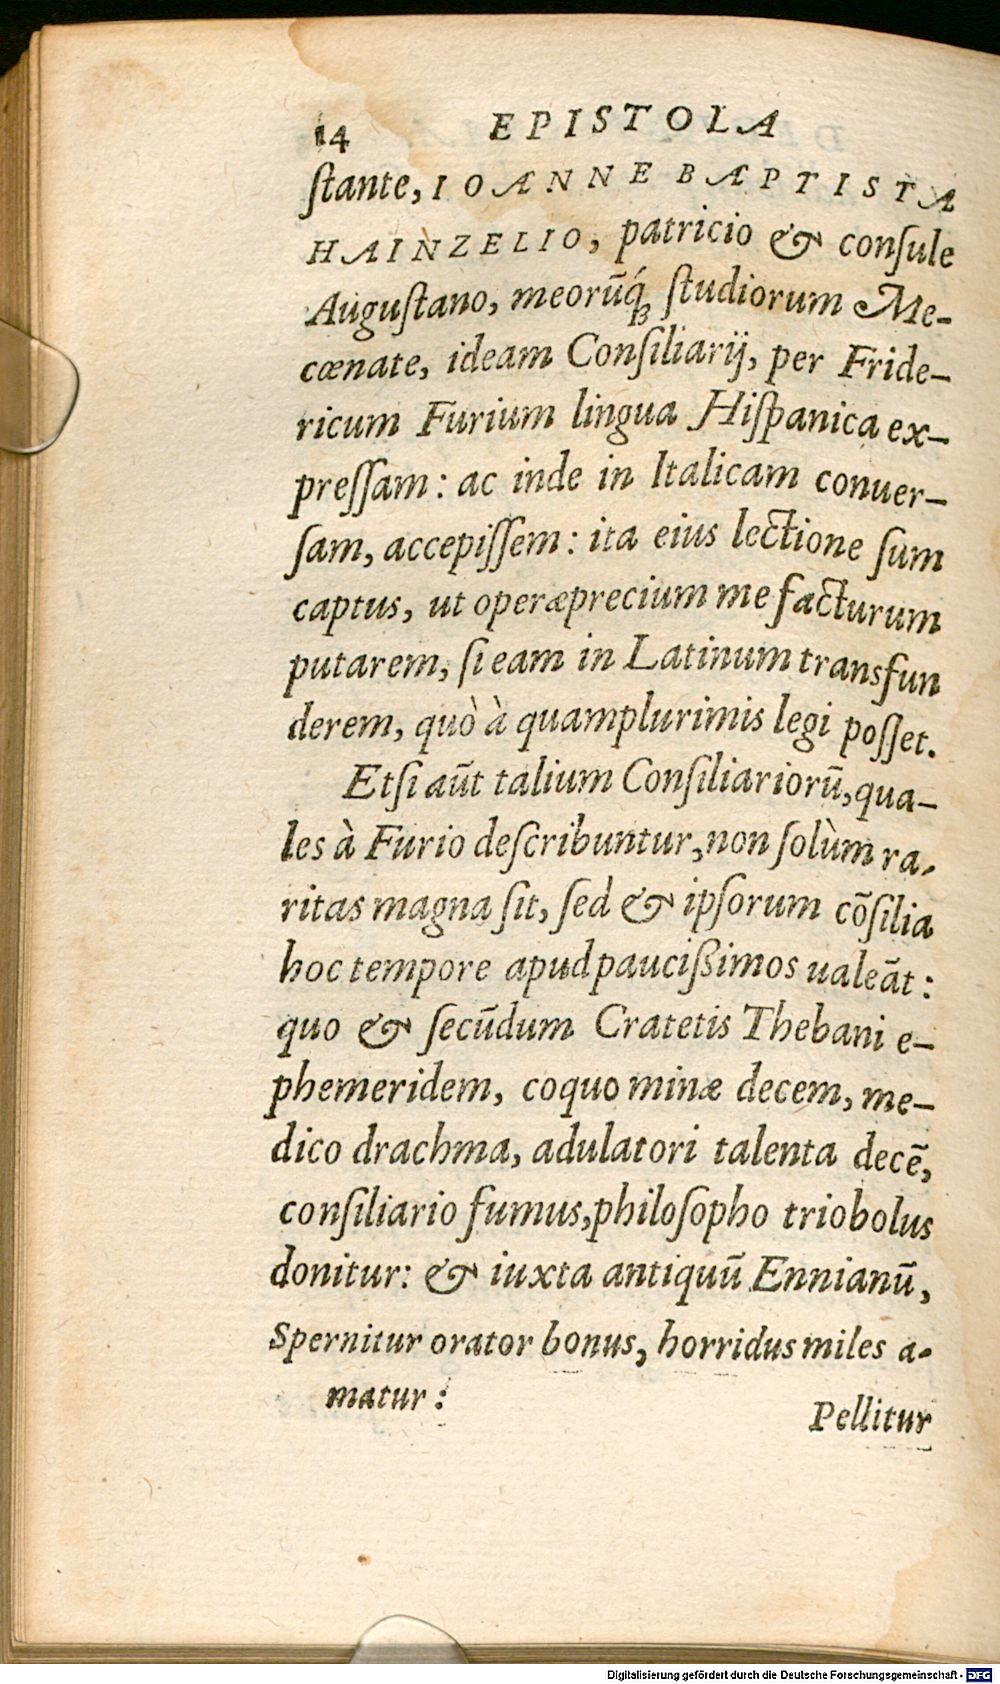 14 EPISTOLA
ſtante, IOANNE BAPTISTA
HAINZELIO, patricio & conſule
Auguſtano, meorūq́ꝫ ſtudiorum Me-
cœnate, ideam Conſiliarij, per Fride-
ricum Furium lingua Hiſpanica ex-
preſſam: ac inde in Italicam conuer-
ſam, accepiſſem: ita eius lectione ſum
captus, ut operæprecium me facturum
putarem, ſi eam in Latinum transfun
derem, quò à quamplurimis legi poſſet.
Etſi aūt talium Conſiliariorū, qua-
les à Furio deſcribuntur, non ſolùm ra-
ritas magna ſit, ſed & ipſorum cōſilia
hoc tempore apud paucißimos ualeāt:
quo & ſecūdum Cratetis Thebani e-
phemeridem, coquo minæ decem, me-
dico drachma, adulatori talenta decē,
conſiliario fumus, philoſopho triobolus
donitur: & iuxta antiquū Ennianū,
Spernitur orator bonus, horridus miles a-
matur:
Pellitur
Digitalisierung gefördert durch die Deutsche Forschungsgemeinschaft - DFG